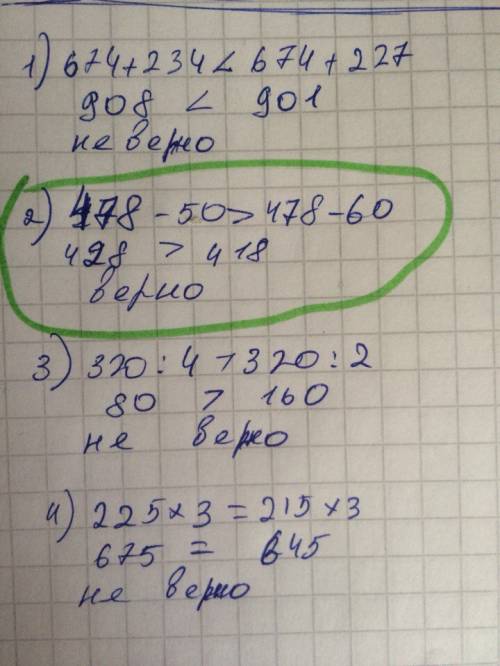 1) 674+234 < 674+227
908 < 901
не верно
2) 478-50 > 478-60
428 > 418
верно
3) 320:4 > 320:2
80 > 160
не верно
4) 225×3 = 215×3
675 = 645
не верно